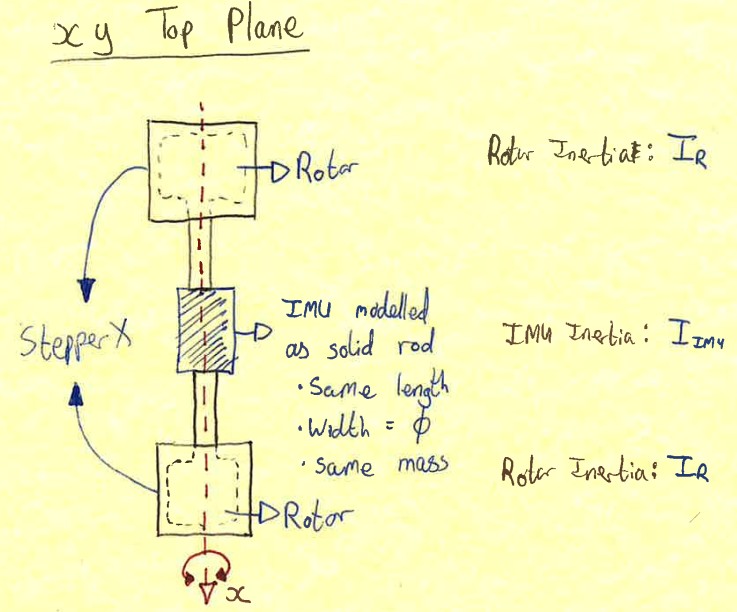 xy Top Plane
Rotor
Rotor Inertia: I_R
Stepper X
IMU modelled
as solid rod
· Same length
· Width = ϕ
· Same mass
IMU Inertia: I_IMU
Rotor
Rotor Inertia: I_R
x